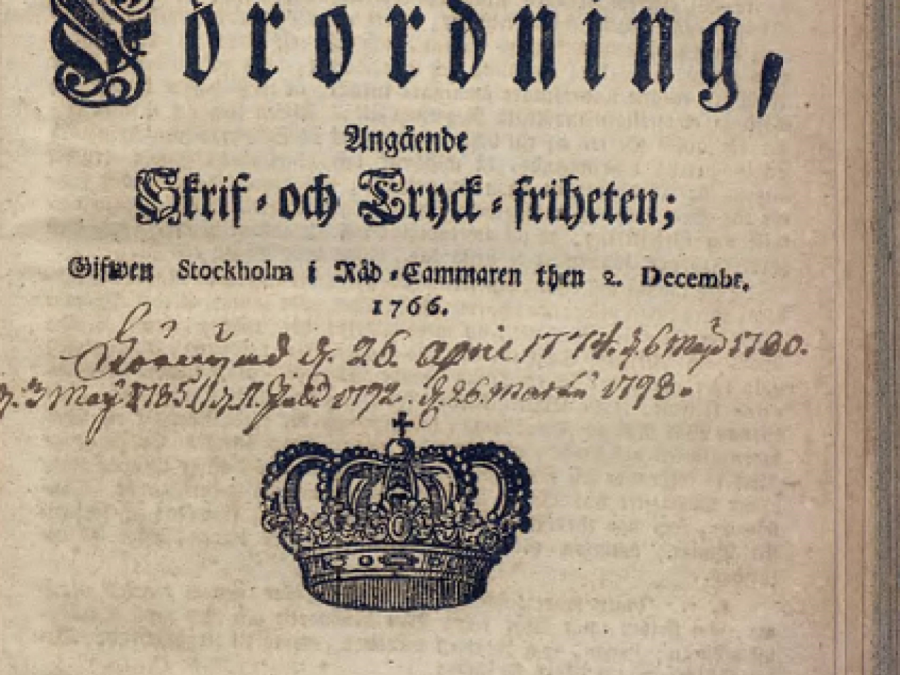 Förordning,
Angående
Skrif-och Tryck-friheten;
Gifwen Stockholm i Råd-Cammaren then 2. Decembr.
1766.
Förnyad d. 26. april 1774. d. 6 Maÿ 1780.
d. 3 Maÿ 1785. d. 11. Julii 1792. d. 26. Martii 1798.